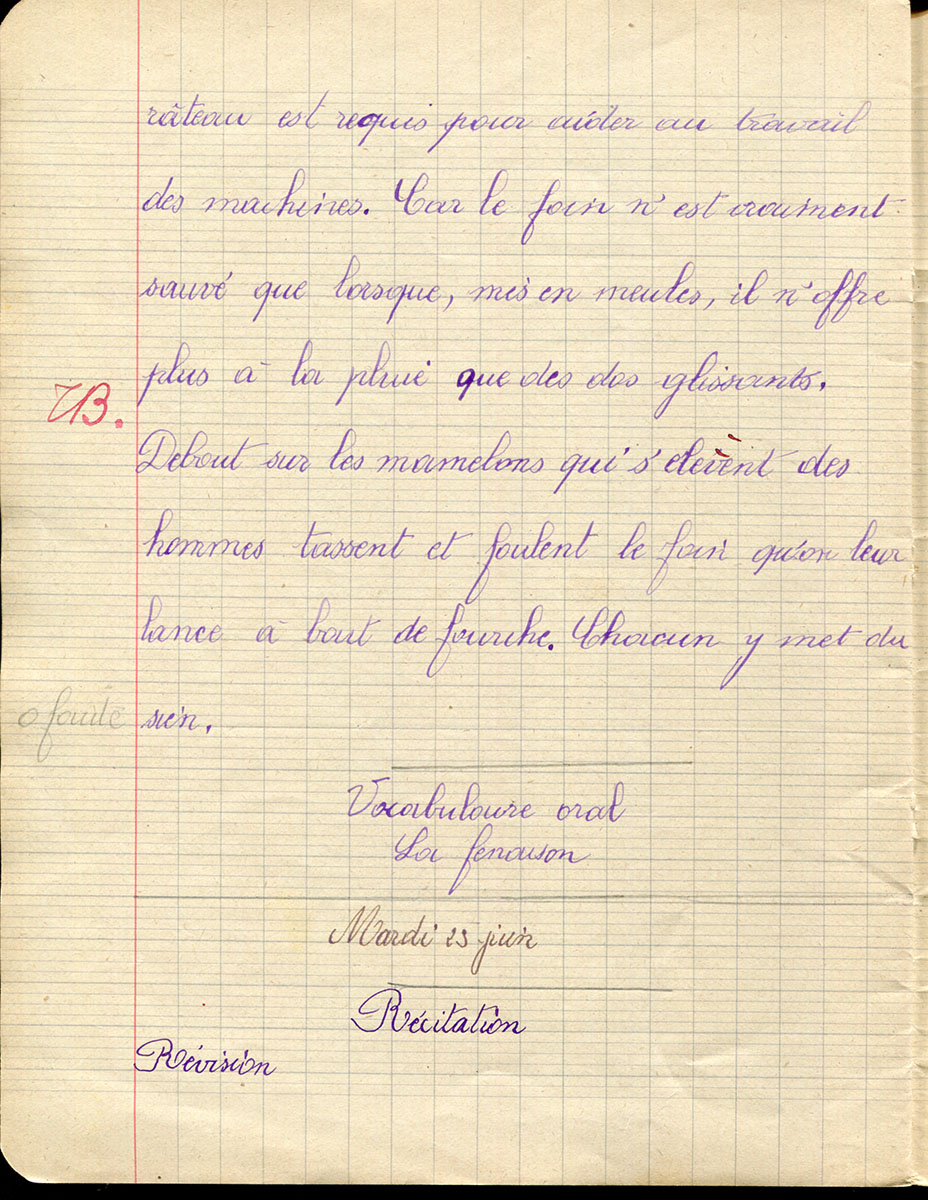 râteau est requis pour aider au travail
des machines. Car le foin n'est vraiment
sauvé que lorsque, mis en meules, il n'offre
plus à la pluie que des dos glissants.
TB.
Debout sur les mamelons qui s'elèvent des
hommes tassent et foulent le foin qu'on leur
lance à bout de fourche. Chacun y met du
0 faute
sien.
Vocabulaire oral
La fenaison
Mardi 23 juin
Récitation
Révision